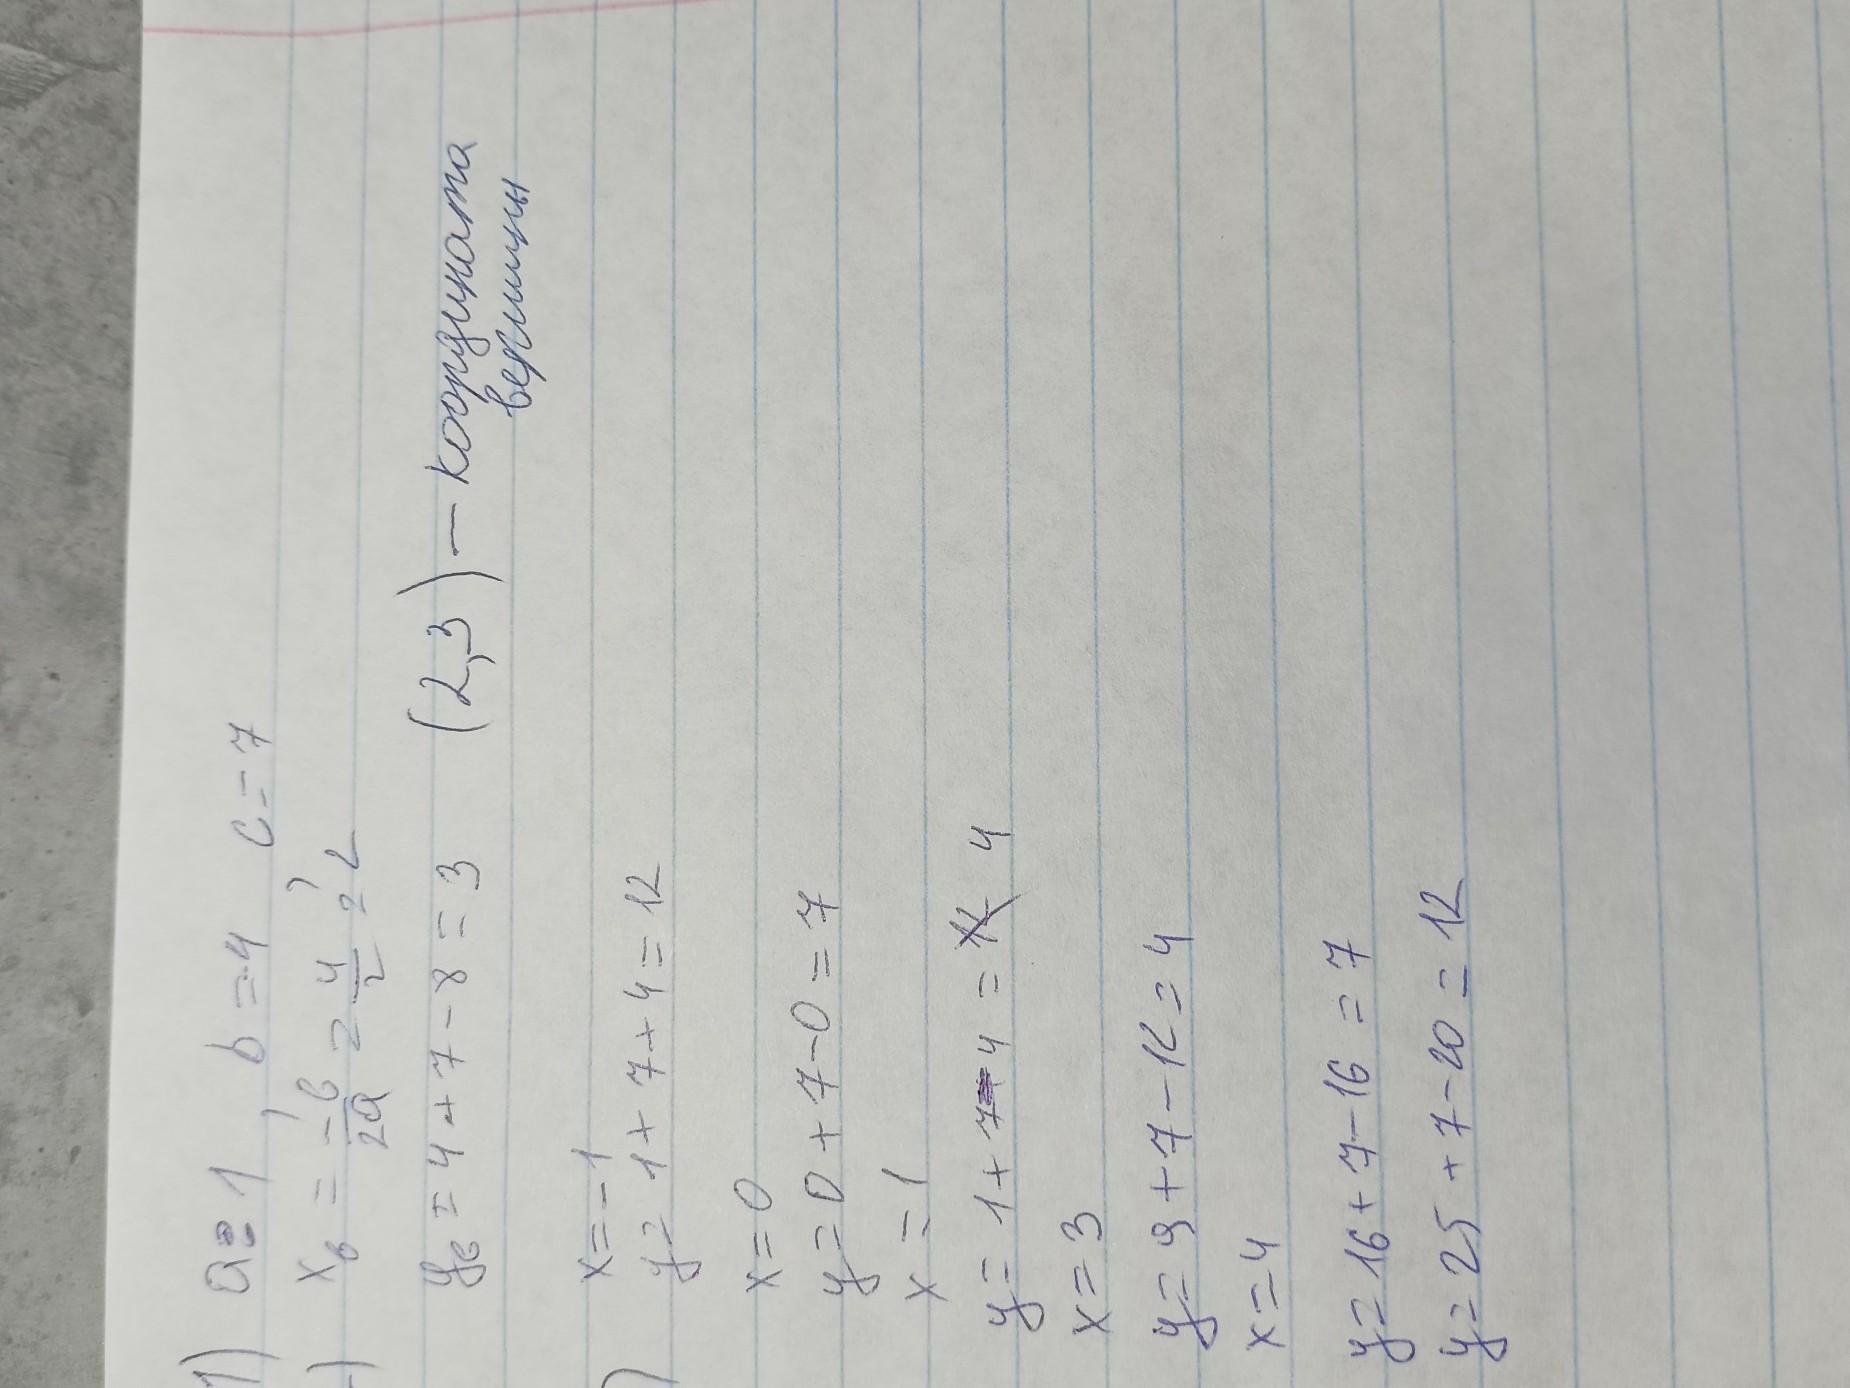 1) a = 1, b = -4, c = 7
x_в = -в/2a = 4/2 = 2
y_в = 4 + 7 - 8 = 3 (2,3) — координата
вершины
x = -1
y = 1 + 7 + 4 = 12
x = 0
y = 0 + 7 - 0 = 7
x = 1
y = 1 + 7 - 4 = 4
x = 3
y = 9 + 7 - 12 = 4
x = 4
y = 16 + 7 - 16 = 7
y = 25 + 7 - 20 = 12